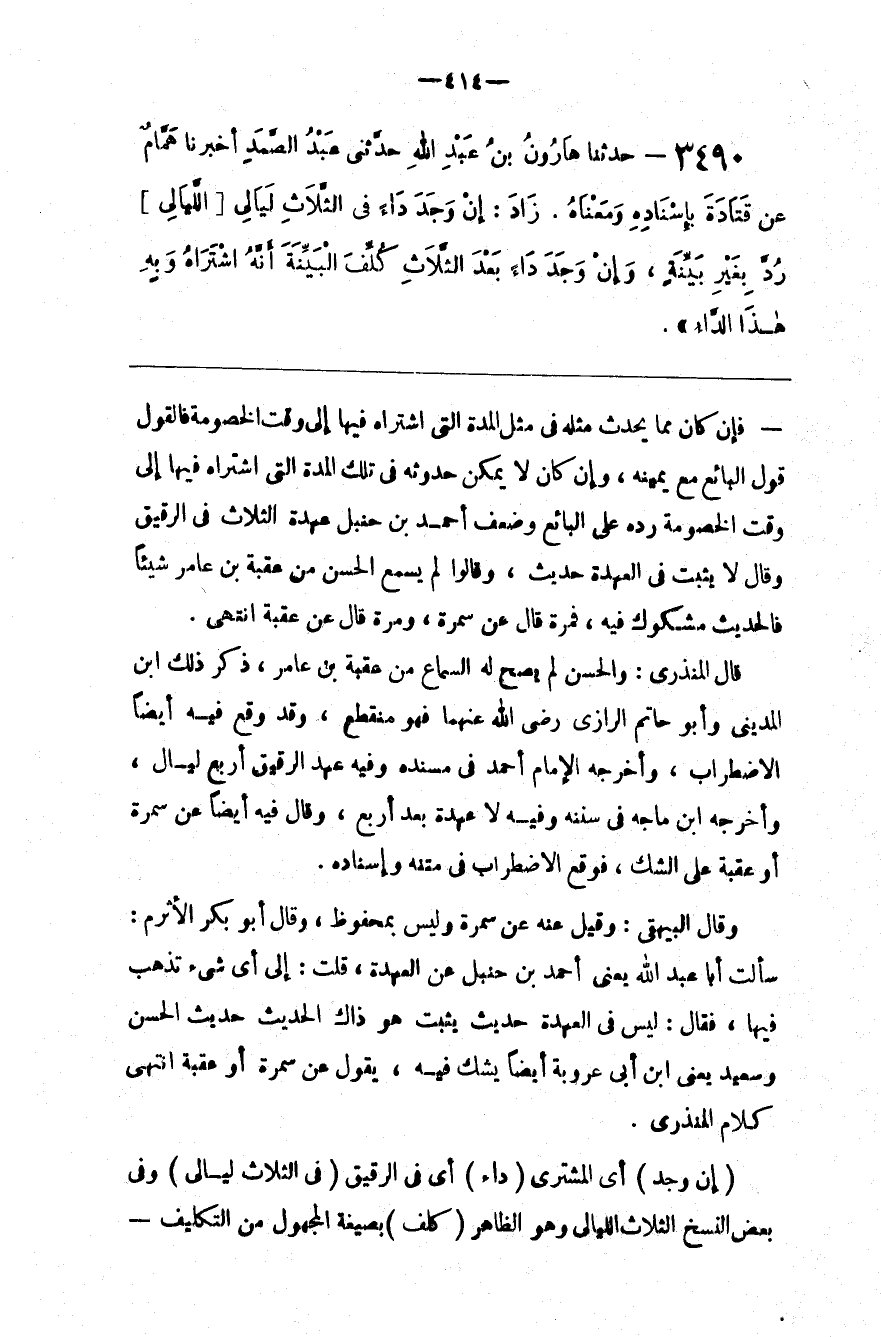 —٤١٤—
٣٤٩٠ — حدثنا هَارُونُ بنُ عَبْدِ اللهِ حدَّثنى عَبْدُ الصَّمَدِ أخبرنا هَمَّامٌ
عن قَتَادَةَ بإِسْنَادِهِ وَمَعْنَاهُ . زَادَ : إنْ وَجَدَ دَاءً فى الثَّلَاثِ لَيَالِى [ اللَّيَالِى ]
رُدَّ بِغَيْرِ بَيِّنَةٍ ، وَإنْ وَجَدَ دَاءً بَعْدَ الثَّلَاثِ كُلِّفَ الْبَيِّنَةَ أَنَّهُ اشْتَرَاهُ وَبِهِ
هٰـذَا الدَّاءِ » .
— فإن كان مما يحدث مثله فى مثل المدة التى اشتراه فيها إلى وقت الخصومة فالقول
قول البائع مع يمينه ، وإن كان لا يمكن حدوثه فى تلك المدة التى اشتراه فيها إلى
وقت الخصومة رده على البائع وضعف أحمـد بن حنبل عهدة الثلاث فى الرقيق
وقال لا يثبت فى العهدة حديث ، وقالوا لم يسمع الحسن من عقبة بن عامر شيئاً
فالحديث مشكوك فيه ، فمرة قال عن سمرة ، ومرة قال عن عقبة انتهى .
قال المنذرى : والحسن لم يصح له السماع من عقبة بن عامر ، ذكر ذلك ابن
المدينى وأبو حاتم الرازى رضى الله عنهما فهو منقطع ، وقد وقع فيـه أيضاً
الاضطراب ، وأخرجه الإمام أحمد فى مسنده وفيه عهد الرقيق أربع ليـال ،
وأخرجه ابن ماجه فى سننه وفيـه لا عهدة بعد أربع ، وقال فيه أيضاً عن سمرة
أو عقبة على الشك ، فوقع الاضطراب فى متنه وإسناده .
وقال البيهقى : وقيل عنه عن سمرة وليس بمحفوظ ، وقال أبو بكر الأثرم :
سألت أبا عبد الله يعنى أحمد بن حنبل عن العهدة ، قلت : إلى أى شىء تذهب
فيها ، فقال : ليس فى العهدة حديث يثبت هو ذاك الحديث حديث الحسن
وسعيد يعنى ابن أبى عروبة أيضاً يشك فيـه ، يقول عن سمرة أو عقبة انتهى
كلام المنذرى .
( إن وجد ) أى المشترى ( داء ) أى فى الرقيق ( فى الثلاث ليـالى ) وفى
بعض النسخ الثلاث الليالى وهو الظاهر ( كلف ) بصيغة المجهول من التكليف —